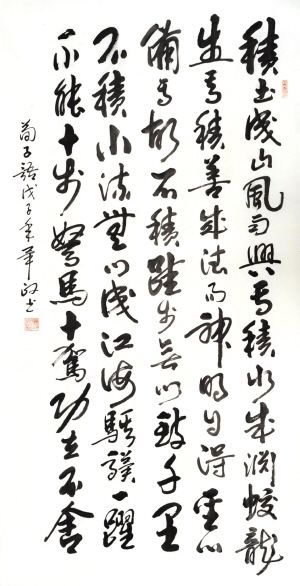 積土成山風雨興焉積水成淵蛟龍
生焉積善成德而神明自得聖心
備焉故不積跬步无以致千里
不積小流無以成江海騏驥一躍
不能十步駑馬十駕功在不舍
荀子語戊子年華政书